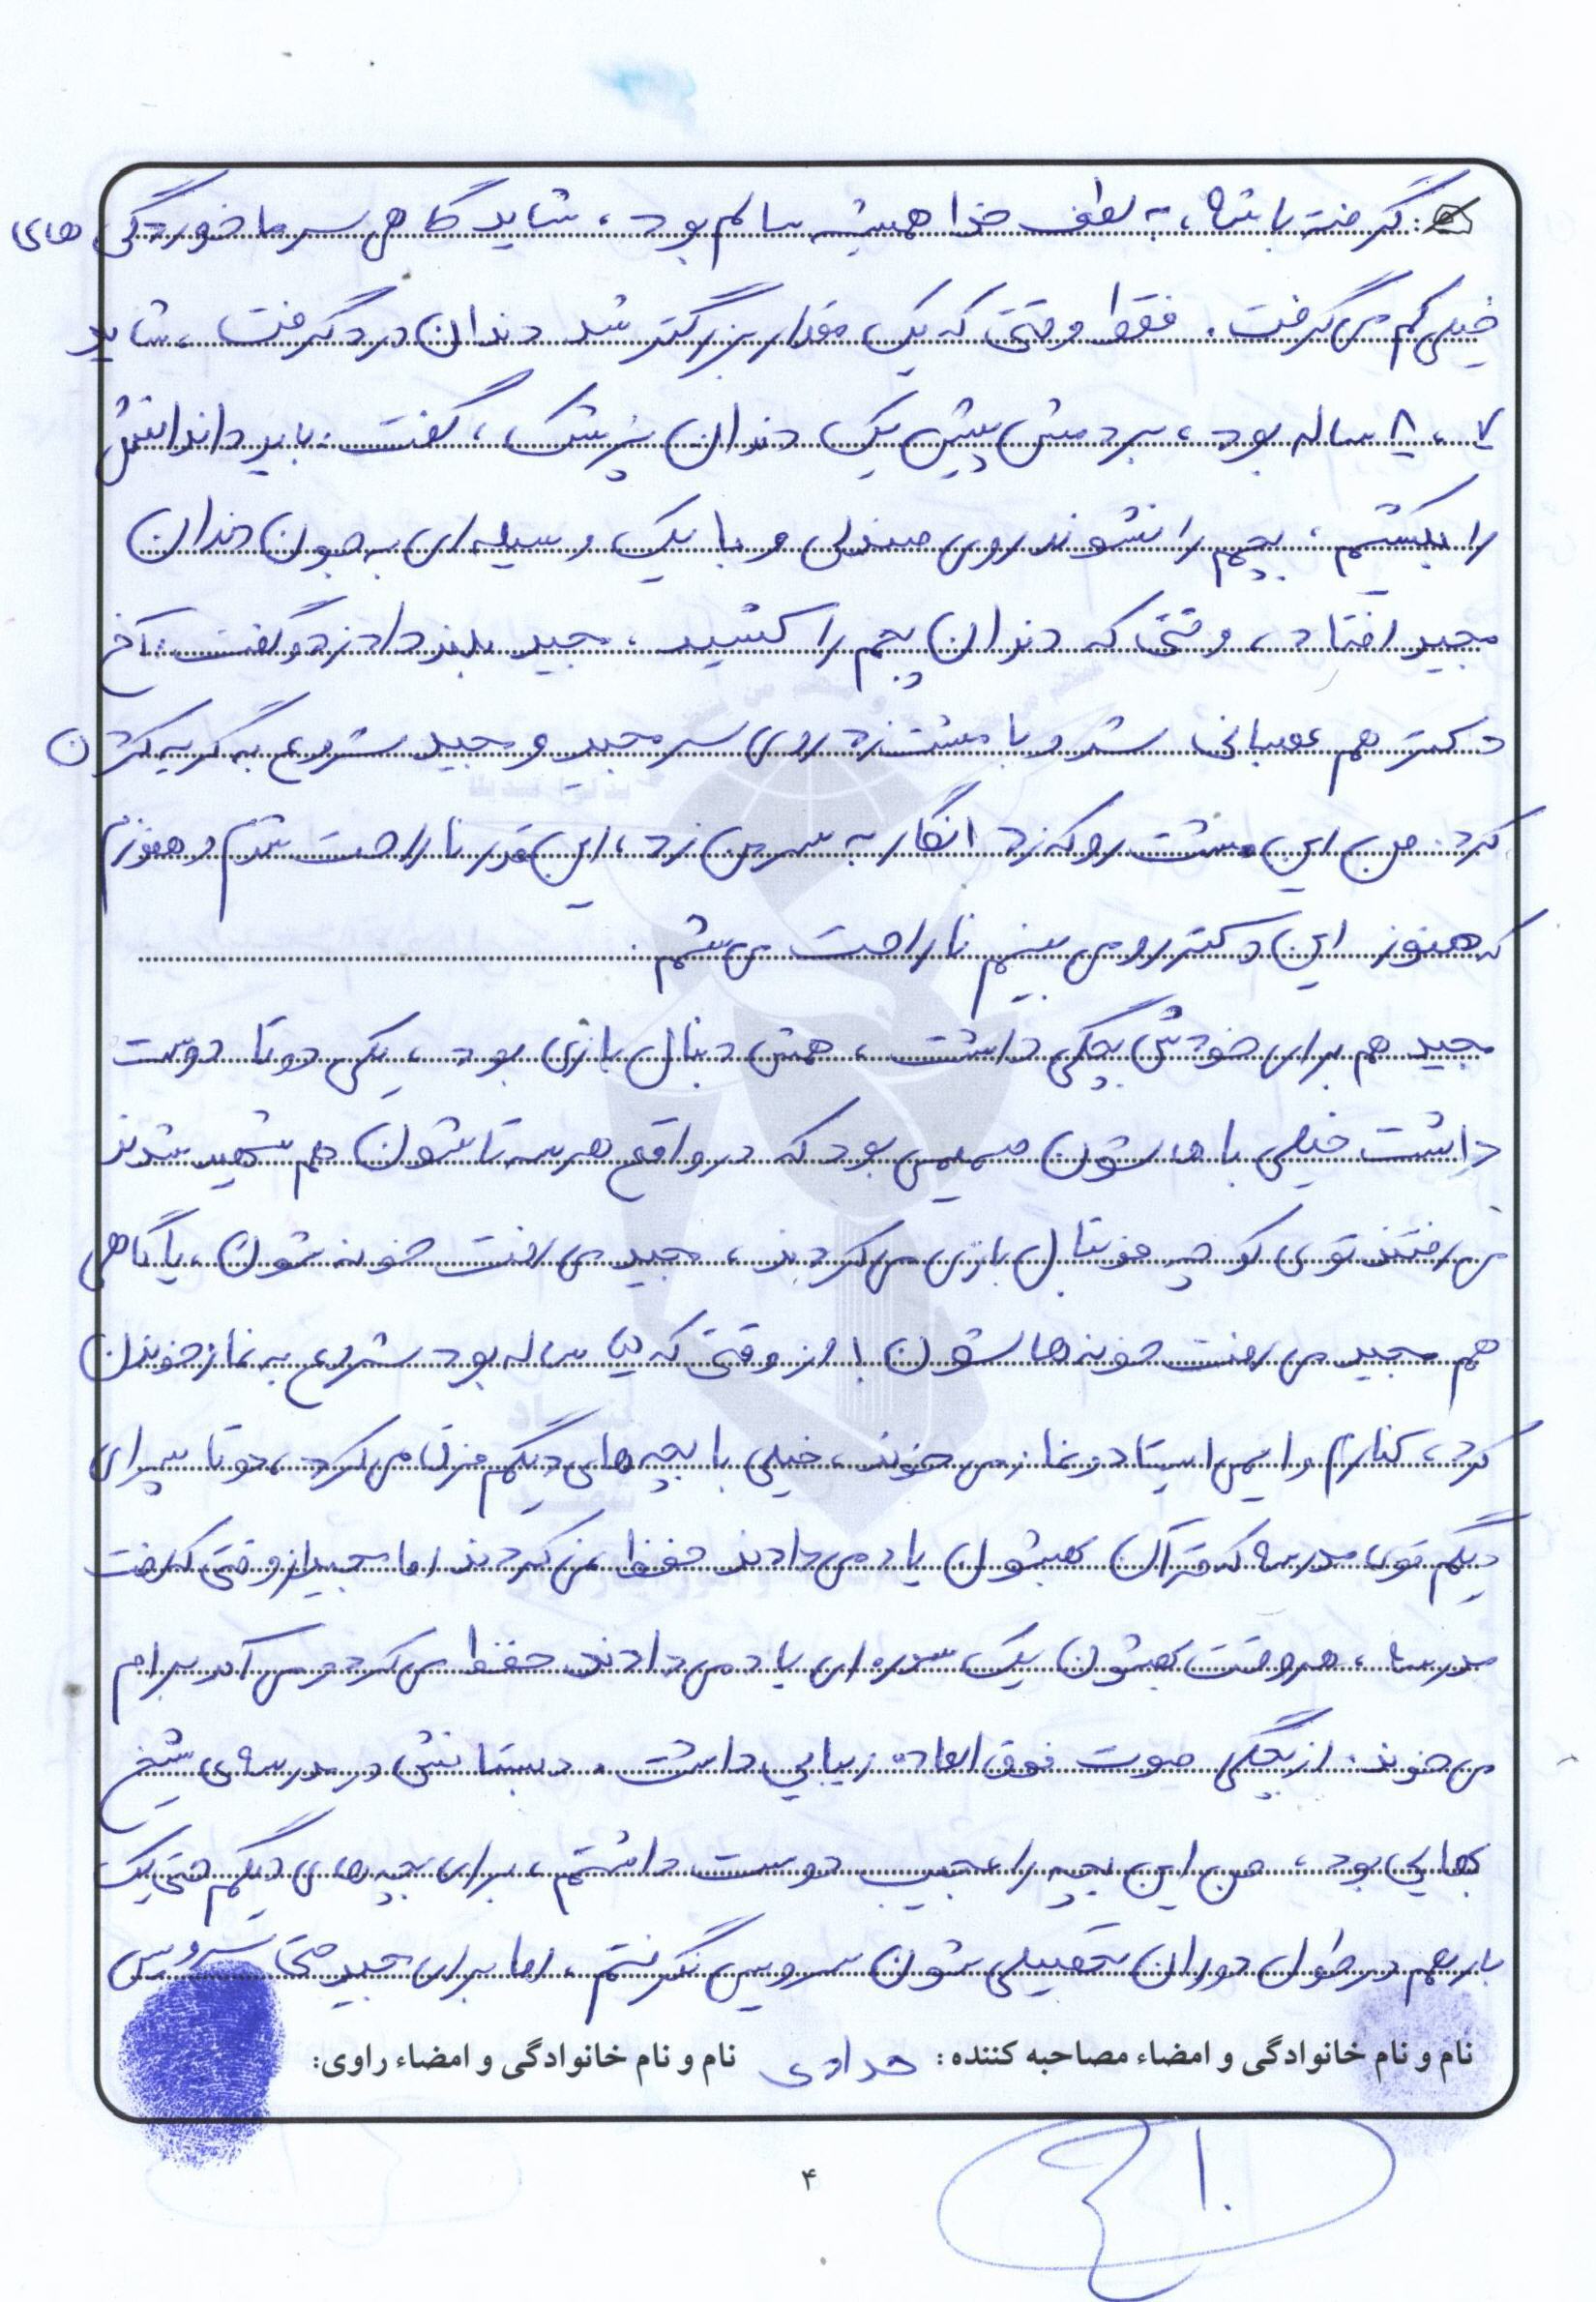 گرفته باشه، به لطف خدا همیشه سالم بود، شاید گاهی سرماخوردگی های
خیلی کم می گرفت. فقط وقتی که یک مقدار بزرگتر شد دندان درد گرفت، شاید
۷، ۸ ساله بود، بردمش پیش یک دندان پزشک، گفت: باید داندانش
را بکشم، بچم را نشوند روی صندلی و با یک وسیله ای به جون دندان
مجید افتاد، وقتی که دندان بچم را کشید، مجید بلند داد زد و گفت: آخ
دکتر هم عصبانی شد و با مشت زد روی سر مجید و مجید شروع به گریه کردن
کرد. من این مشت رو که زد انگار به سر من زد، این قدر ناراحت شدم و هنوزم
که هنوز این دکتر رو می بینم ناراحت می شم.
مجید هم برای خودش بچگی داشت، همش دنبال بازی بود، یکی دوتا دوست
داشت خیلی باهاشون صمیمی بود که در واقع هر سه تاشون هم شهید شدند
می رفتند توی کوچه فوتبال بازی می کردند، مجید می رفت خونه شون، یا گاهی
هم مجید می رفت خونه هاشون! از وقتی که ساله بود شروع به نماز خوندن
کرد، کنارم وایمی استاد و نماز می خوند، خیلی با بچه های دیگم فرق می کرد، دوتا پسرای
دیگم توی مدرسه که قرآن بهشون یاد می دادند حفظ نمی کردند اما مجید از وقتی که رفت
مدرسه، هر وقت بهشون یک سوره ای یاد می دادند حفظ می کرد و می آمد برام
می خوند. از بچگی صوت فوق العاده زیبایی داشت. دبستانش در مدرسه ی شیخ
بهایی بود، من این بچه را عجیب دوست داشتم، برای بچه های دیگم حتی یک
بار هم در طول دوران تحصیلی شون سرویس نگرفتم، اما برای مجید حتی سرویس
نام و نام خانوادگی و امضاء مصاحبه کننده: نام و نام خانوادگی و امضاء راوی:
۴